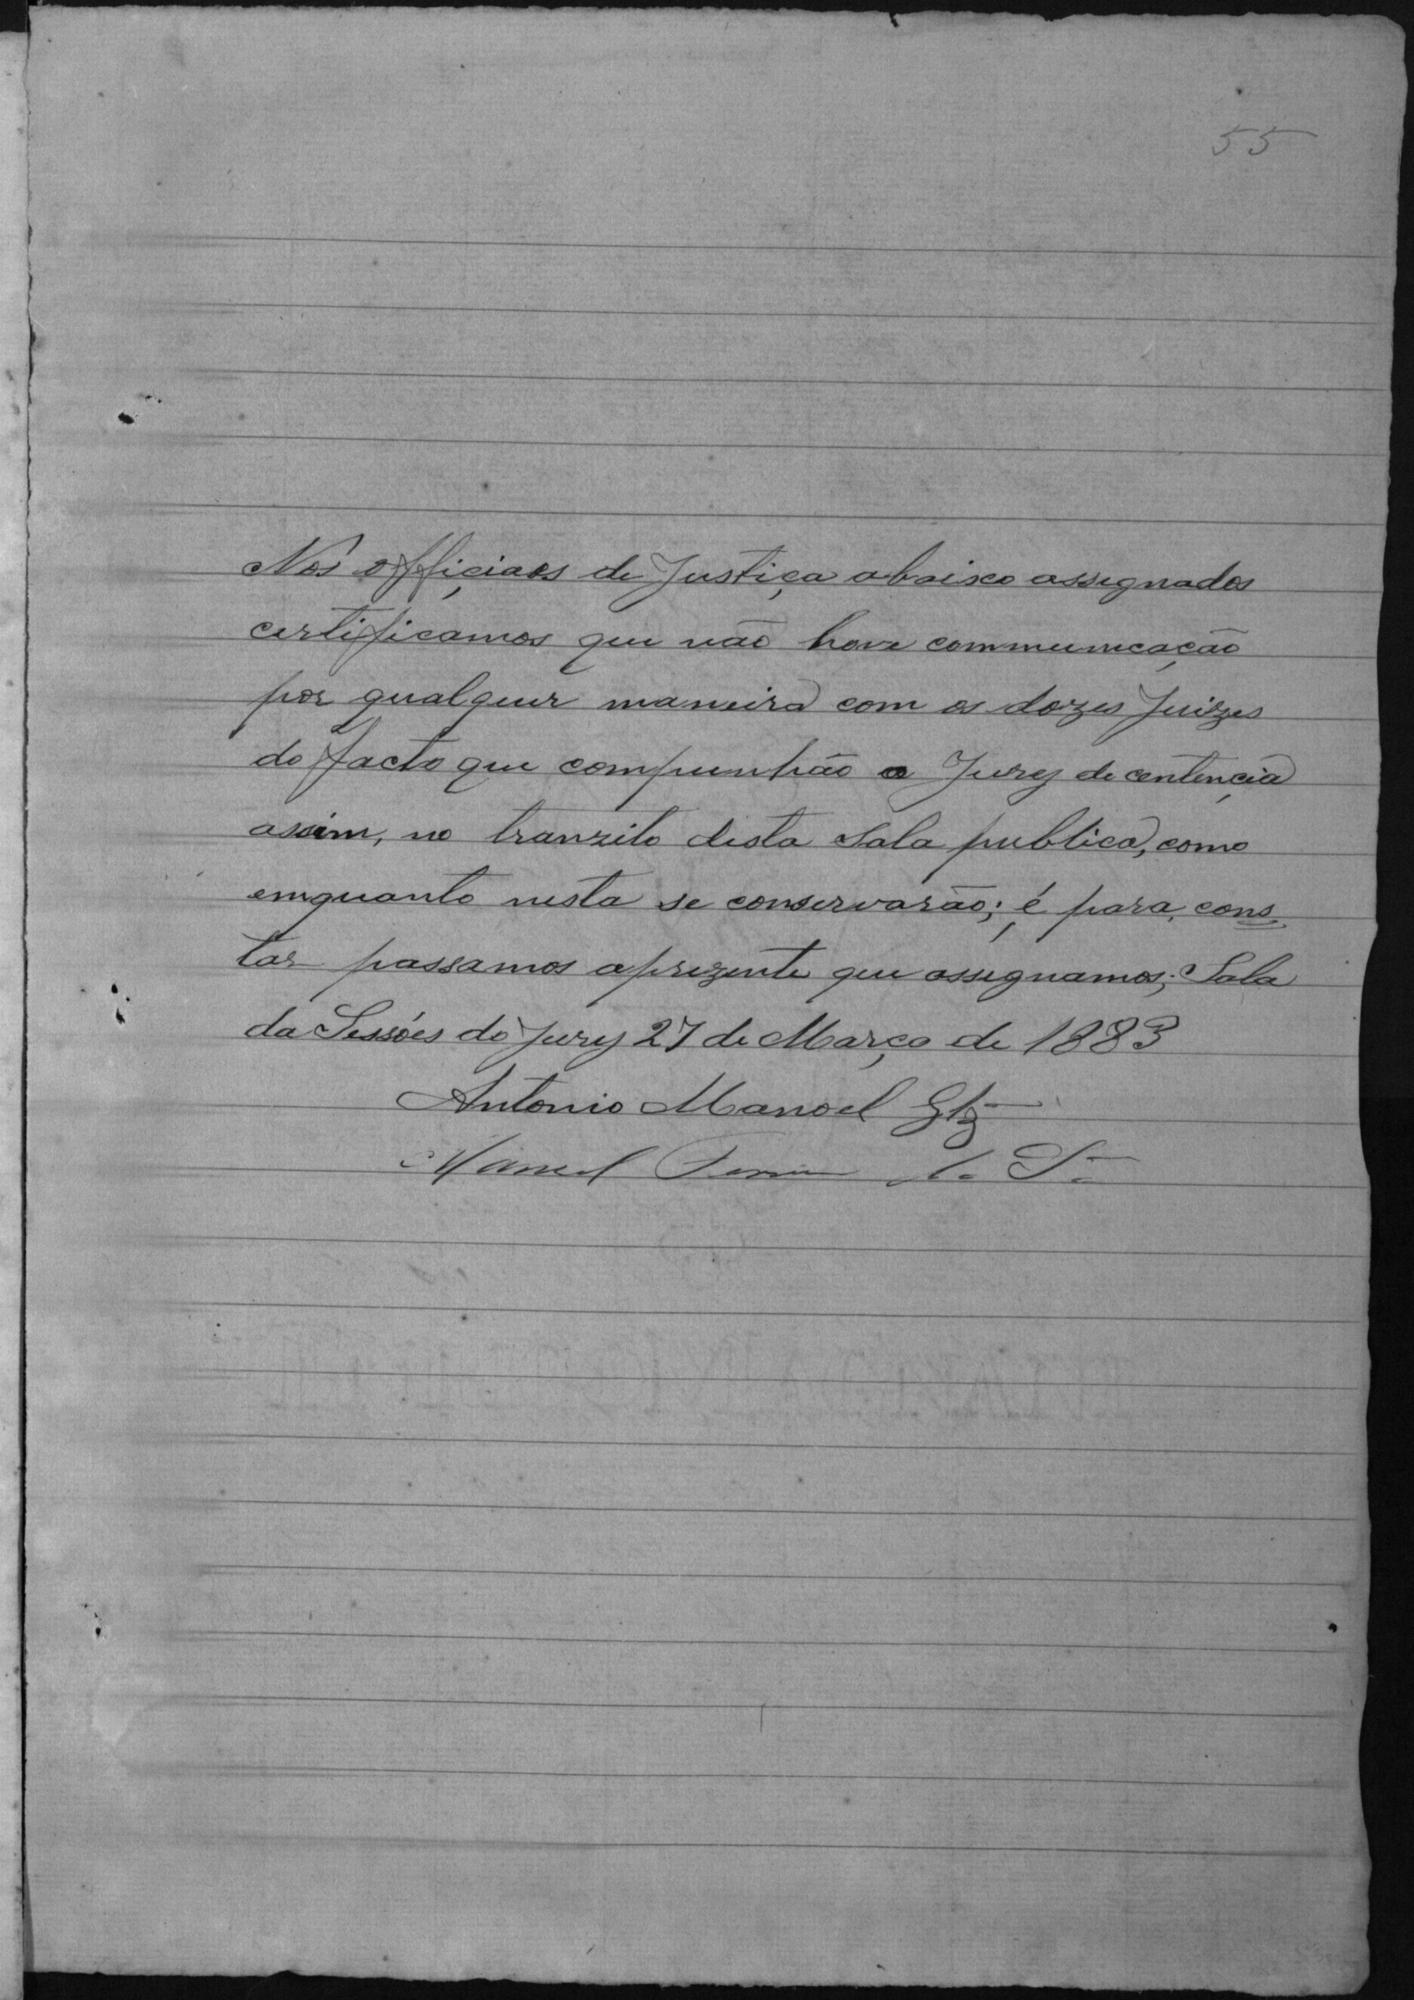 55
Nós offiçiaes de Justiça abaixo assegnados
certificamos que não hove communicação
por qualquer maneira com os dozes Juizes
do facto que compunhão o Jury de centençia
assim, no tranzito desta Sala publica, como
emquanto nesta se conservarão; é para cons
tar passamos aprezente que assegnamos; Sala
da Sessões do Jury 27 de Março de 1883
Antonio Manoel
Manoel